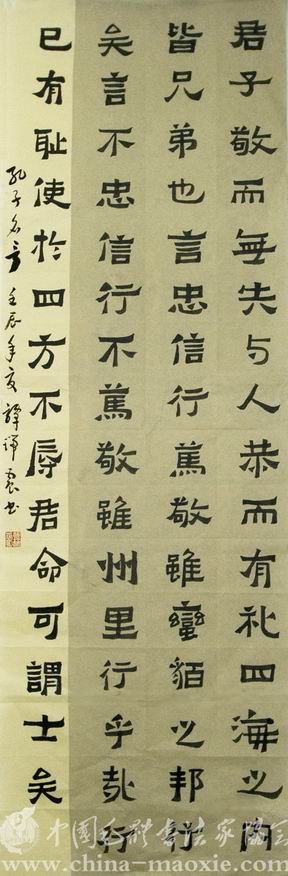 君子敬而無失与人恭而有礼四海之内
皆兄弟也言忠信行篤敬雖蠻貊之邦行
矣言不忠信行不篤敬雖州里行乎哉行
已有耻使於四方不辱君命可謂士矣
孔子名言 壬辰年夏 书
中國毛體書法家協会
www.china-maoxie.com